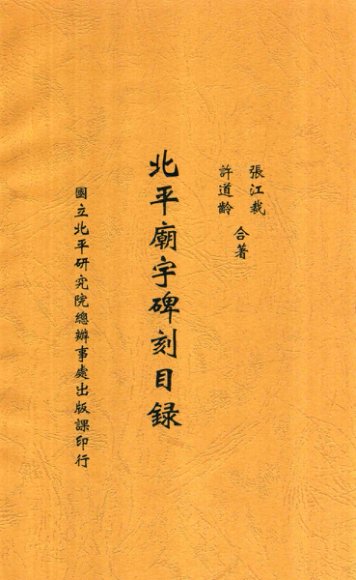 張江裁
許道齡
合著
北平廟宇碑刻目録
國立北平研究院總辦事處出版課印行